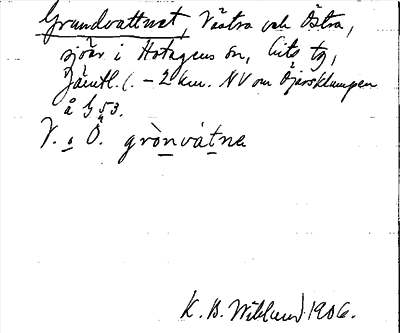 Grundvattnet, Västra och Östra,
sjöar i Hotagens sn, Lits tg,
Jämtl. l. - 2 km. NV om Öjarsklumpen
å G 53.
V. o Ö. grònvátne
K. B. Wiklund 1906.